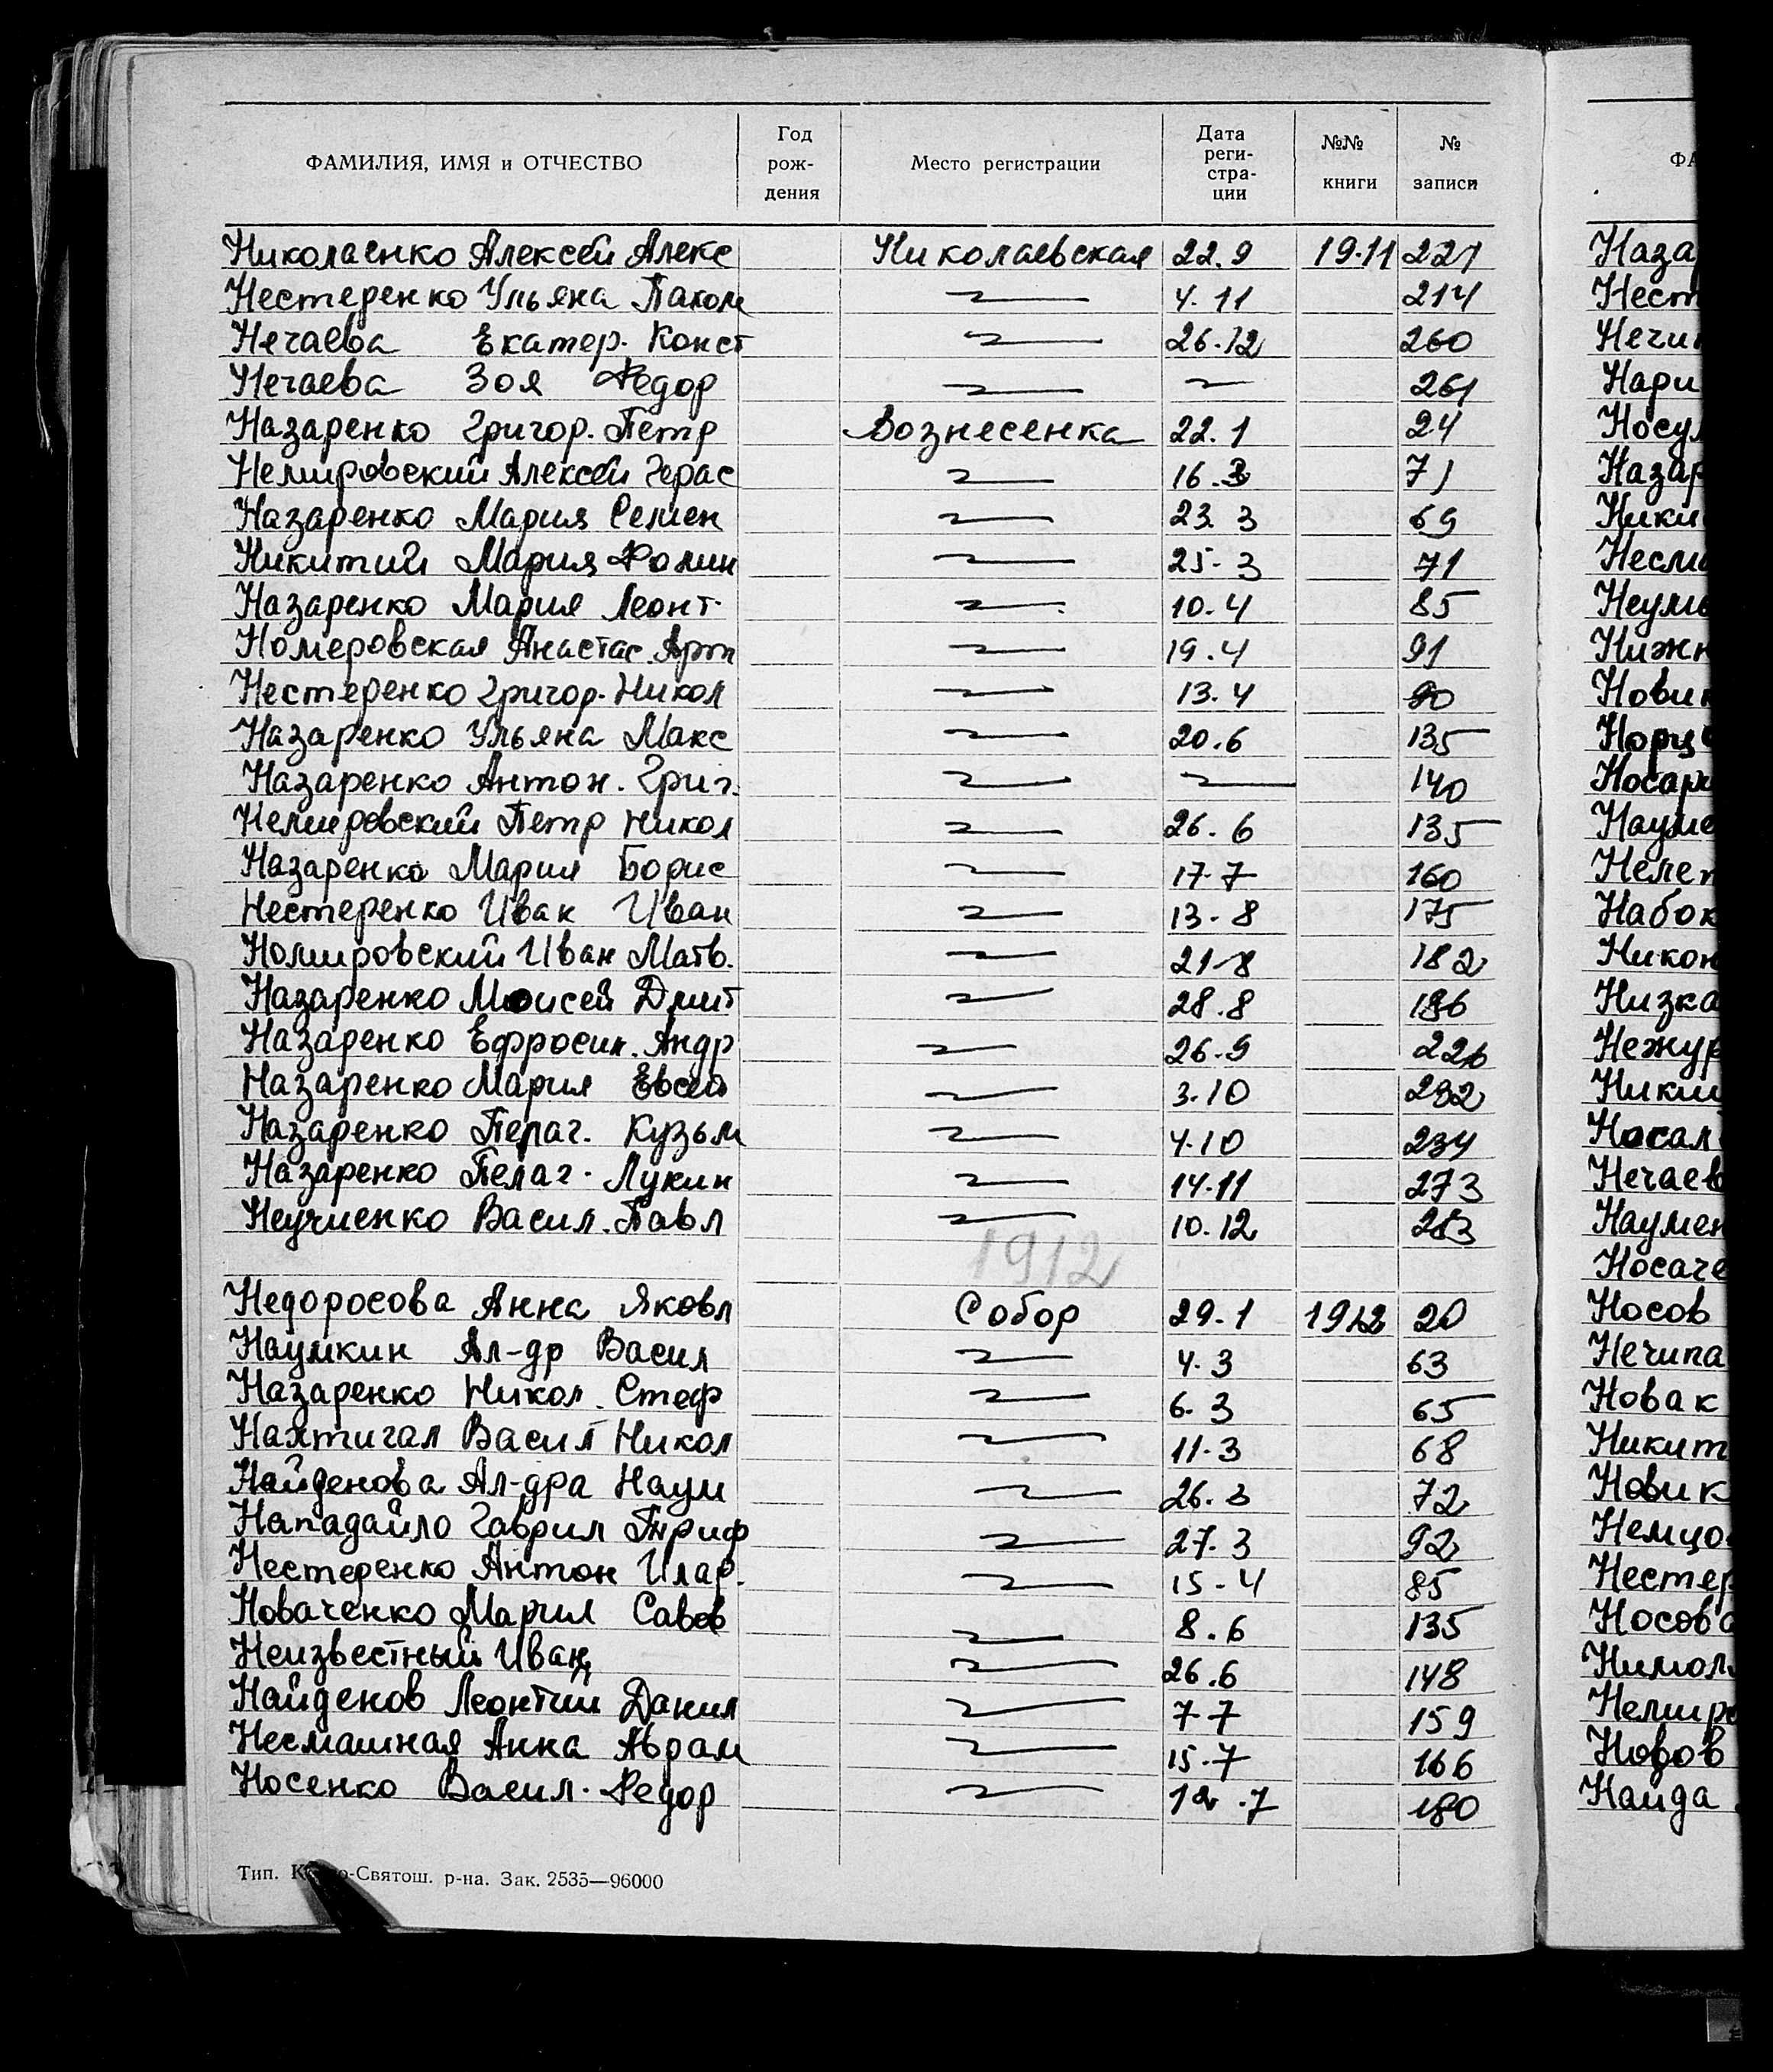 ФАМИЛИЯ, ИМЯ и ОТЧЕСТВО Год рождения Место регистрации Дата регистрации №№ книги № записи
Николаенко Алексей Алекс Николаевская 22.9 19.11 227
Нестеренко Ульяна Пахом 4.11 214
Нечаева Екатер. Конст 26.12 260
Нечаева Зоя Федор 261
Назаренко Григор. Петр Вознесенка 22.1 24
Немировский Алексей Герас 16.3 71
Назаренко Мария Семен 23.3 69
Никитий Мария Фомин 25.3 71
Назаренко Мария Леонт. 10.4 85
Номеровская Анастас. Арт 19.4 91
Нестеренко Григор. Никол 13.4 90
Назаренко Ульяна Макс 20.6 135
Назаренко Антон. Григ. 140
Немировский Петр Никол 26.6 135
Назаренко Мария Борис 17.7 160
Нестеренко Иван Иван 13.8 175
Номировский Иван Матв. 21.8 182
Назаренко Моисей Дмит 28.8 186
Назаренко Ефросин. Андр 26.9 226
Назаренко Мария Евсей 3.10 232
Назаренко Пелаг. Кузьм 4.10 234
Назаренко Пелаг. Лукин 14.11 273
Васил. Павл 10.12
1912
Недоросова Анна Яковл Собор 29.1 1912 20
Наумкин Ал-др Васил 4.3 63
Назаренко Никол. Стеф 6.3 65
Нахтигал Васил Никол 11.3 68
Найденова Ал-дра Наум 26.3 72
Нападайло Гаврил Триф 27.3 92
Нестеренко Антон Илар. 15.4 85
Новаченко Мария Савов 8.6 135
Неизвестный Иван 26.6 148
Найденов Леонтий Данил 7.7 159
Несмашная Анна Абрам 15.7 166
Носенко Васил. Федор 12.7 180
Тип. -Святош. р-на. Зак. 2535—96000
ФА
Наза
Нест
Нечи
Нари
Носу
Назар
Ники
Несм
Неум
Нижн
Нови
Норц
Носар
Наум
Неле
Набок
Никон
Низка
Нежур
Ники
Носал
Нечаев
Наумен
Носаче
Носов
Нечипа
Новак
Никит
Новик
Немцо
Нестер
Носова
Нимол
Немир
Найда